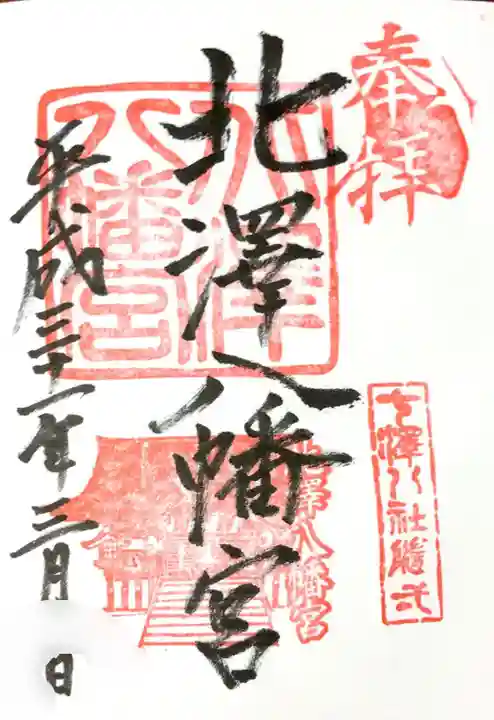 奉拝
七澤八社随弌
北澤八幡宮
北澤八幡宮
平成三十一年三月 日